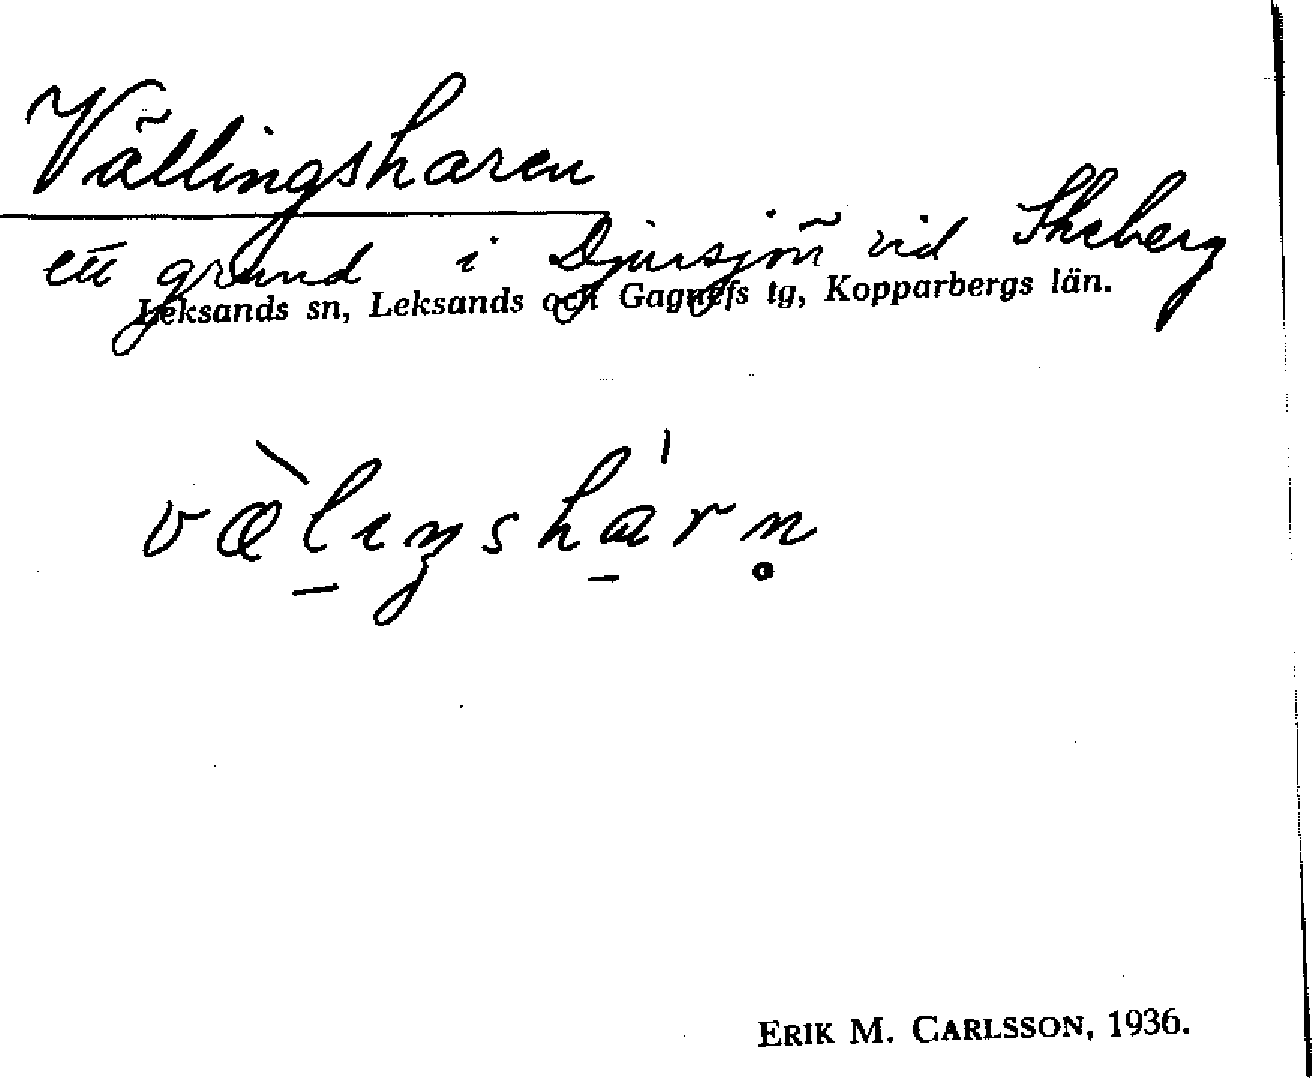 Vällingsharen
ett grund i Djursjön vid Skeberg
Leksands sn, Leksands och Gagnefs tg, Kopparbergs län.
væ̀lıŋshárn̥
ERIK M. CARLSSON, 1936.